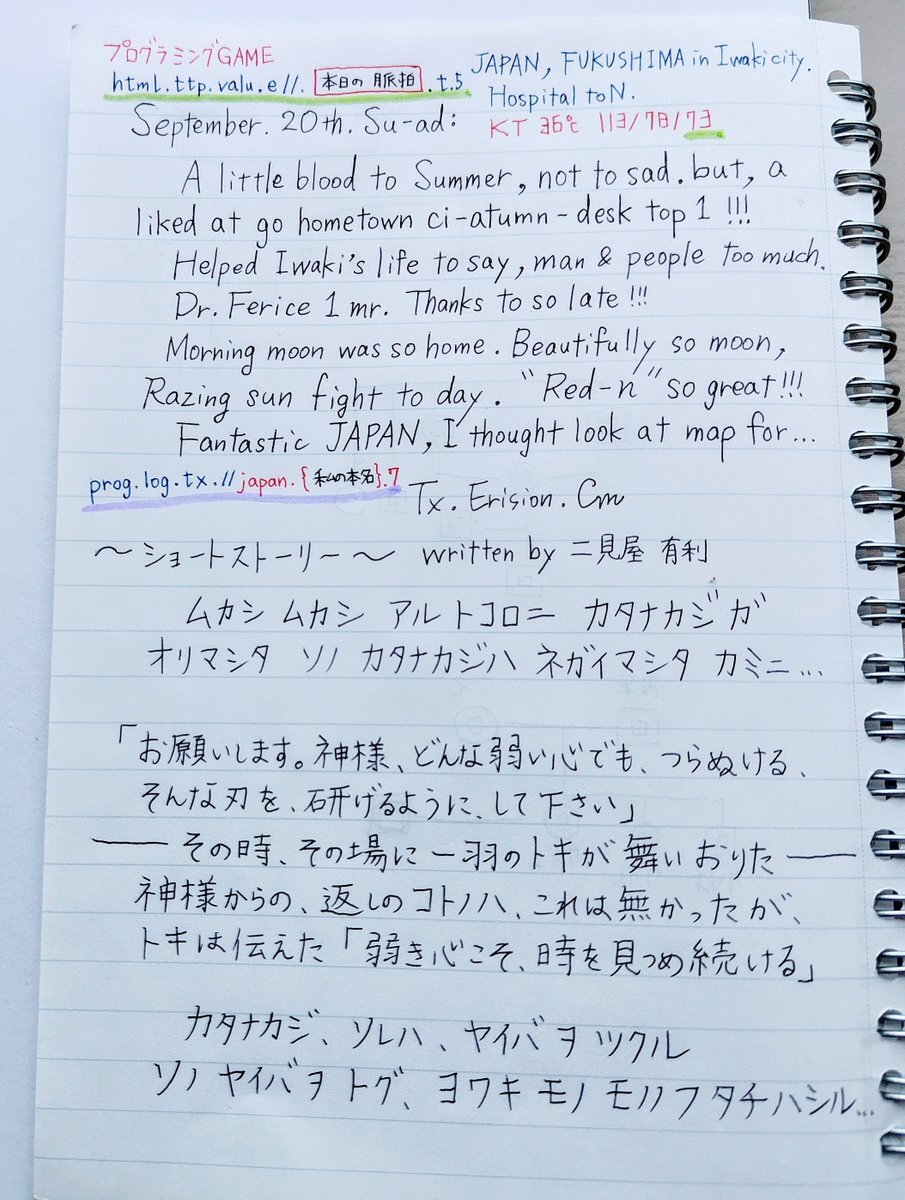 プログラミングGAME
html.ttp.valu.e//. 本日の脈拍 .t.5
JAPAN, FUKUSHIMA in Iwaki city.
Hospital to N.
KT 36℃ 113/78/73
September. 20th. Su-ad:
A little blood to Summer, not to sad. but, a
liked at go hometown ci-atumn-desk top 1 !!!
Helped Iwaki's life to say, man & people too much.
Dr. Ferice 1 mr. Thanks to so late!!!
Morning moon was so home. Beautifully so moon,
Razing sun fight to day. "Red-n" so great!!!
Fantastic JAPAN, I thought look at map for...
prog.log.tx.//japan.{私の本名}.7
Tx. Erision. Cm
～ショートストーリー～ written by 二見屋 有利
ムカシ ムカシ アル トコロニ カタナカジガ
オリマシタ ソノ カタナカジハ ネガイマシタ カミニ...
「お願いします。神様、どんな弱い心でも、つらぬける、
そんな刃を、研げるように、して下さい」
――その時、その場に一羽のトキが舞いおりた――
神様からの、返しのコトノハ、これは無かったが、
トキは伝えた「弱き心こそ、時を見つめ続ける」
カタナカジ、ソレハ、ヤイバヲ ツクル
ソノ ヤイバヲ トグ、ヨワキ モノ モノノフ タチハシル...